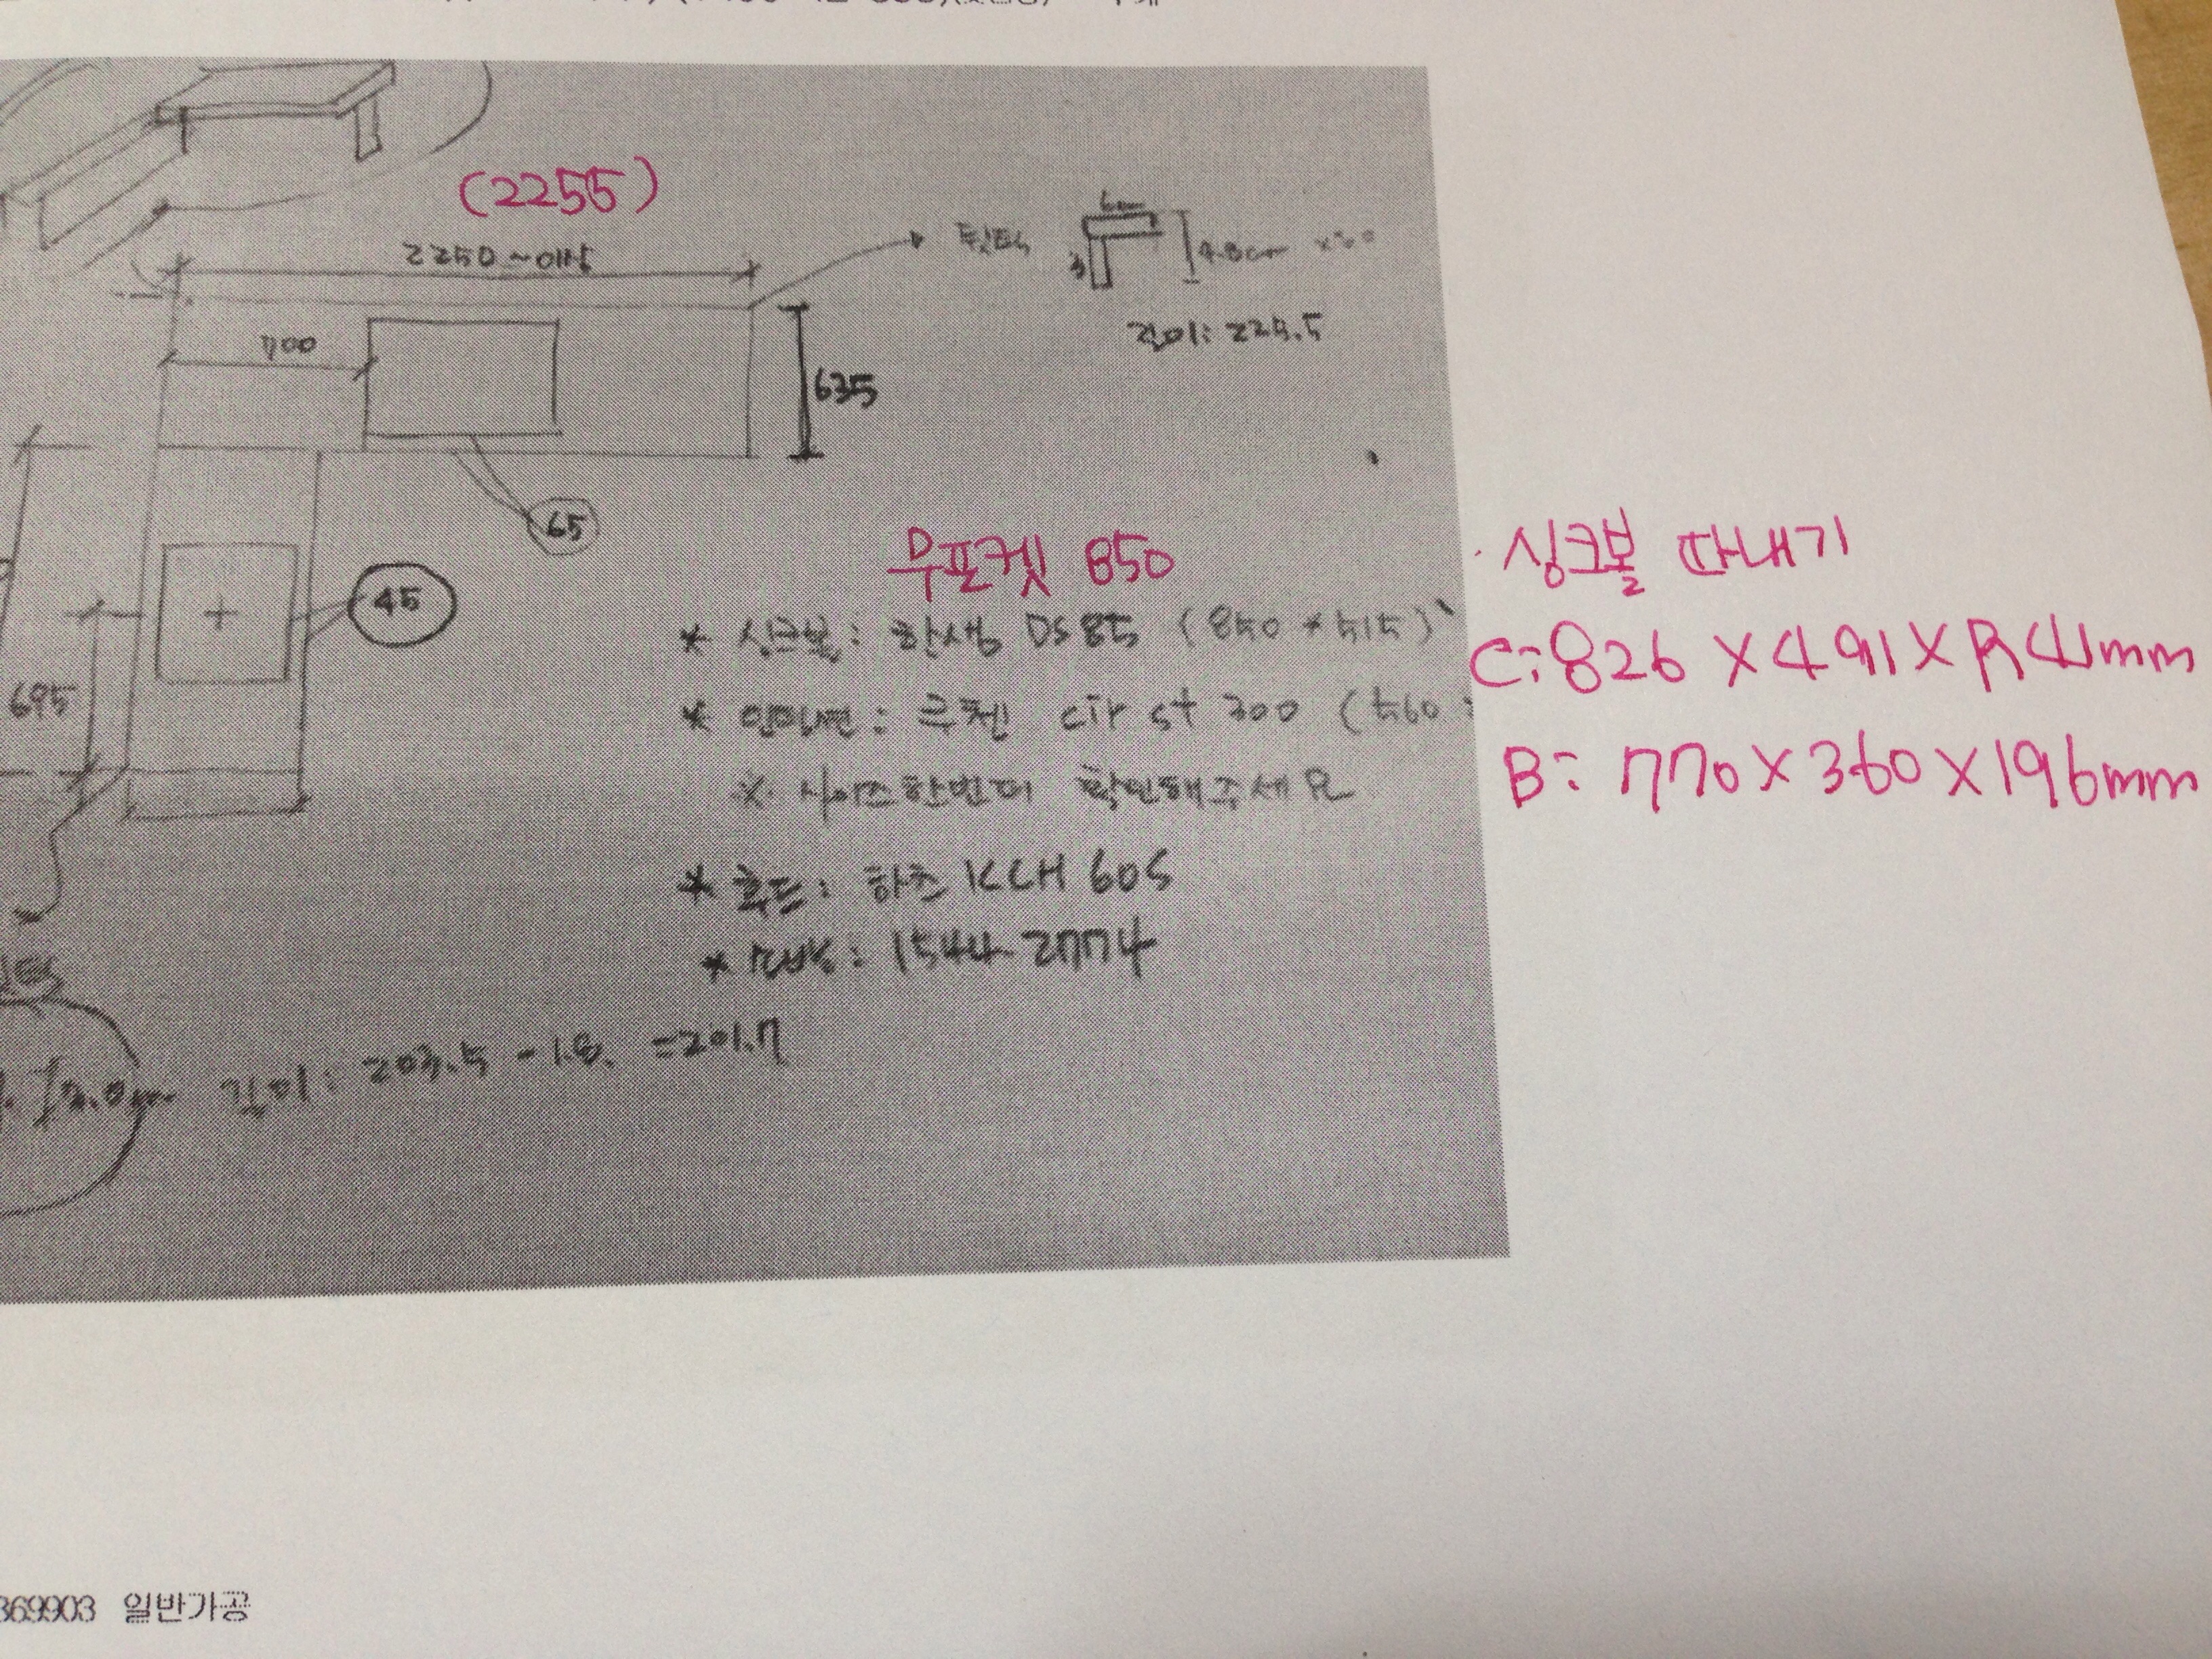 (2255)
2250~예상
뒷턱
6cm
3
4.8cm x30
길이: 225.5
700
635
65
45
695
무포켓 850
싱크볼 따내기
C: 826 X 491 X R41mm
B: 770 X 360 X 196mm
* 싱크볼: 한샘 DS85 (850 * 515)
* 인덕션: 쿠첸 cir st 300 (560
※ 사이즈한번더 확인해주세요
* 후드: 하츠 KCH 60S
* : 1544 2774
길이: 203.5 - 1.8. = 201.7
369903 일반가공